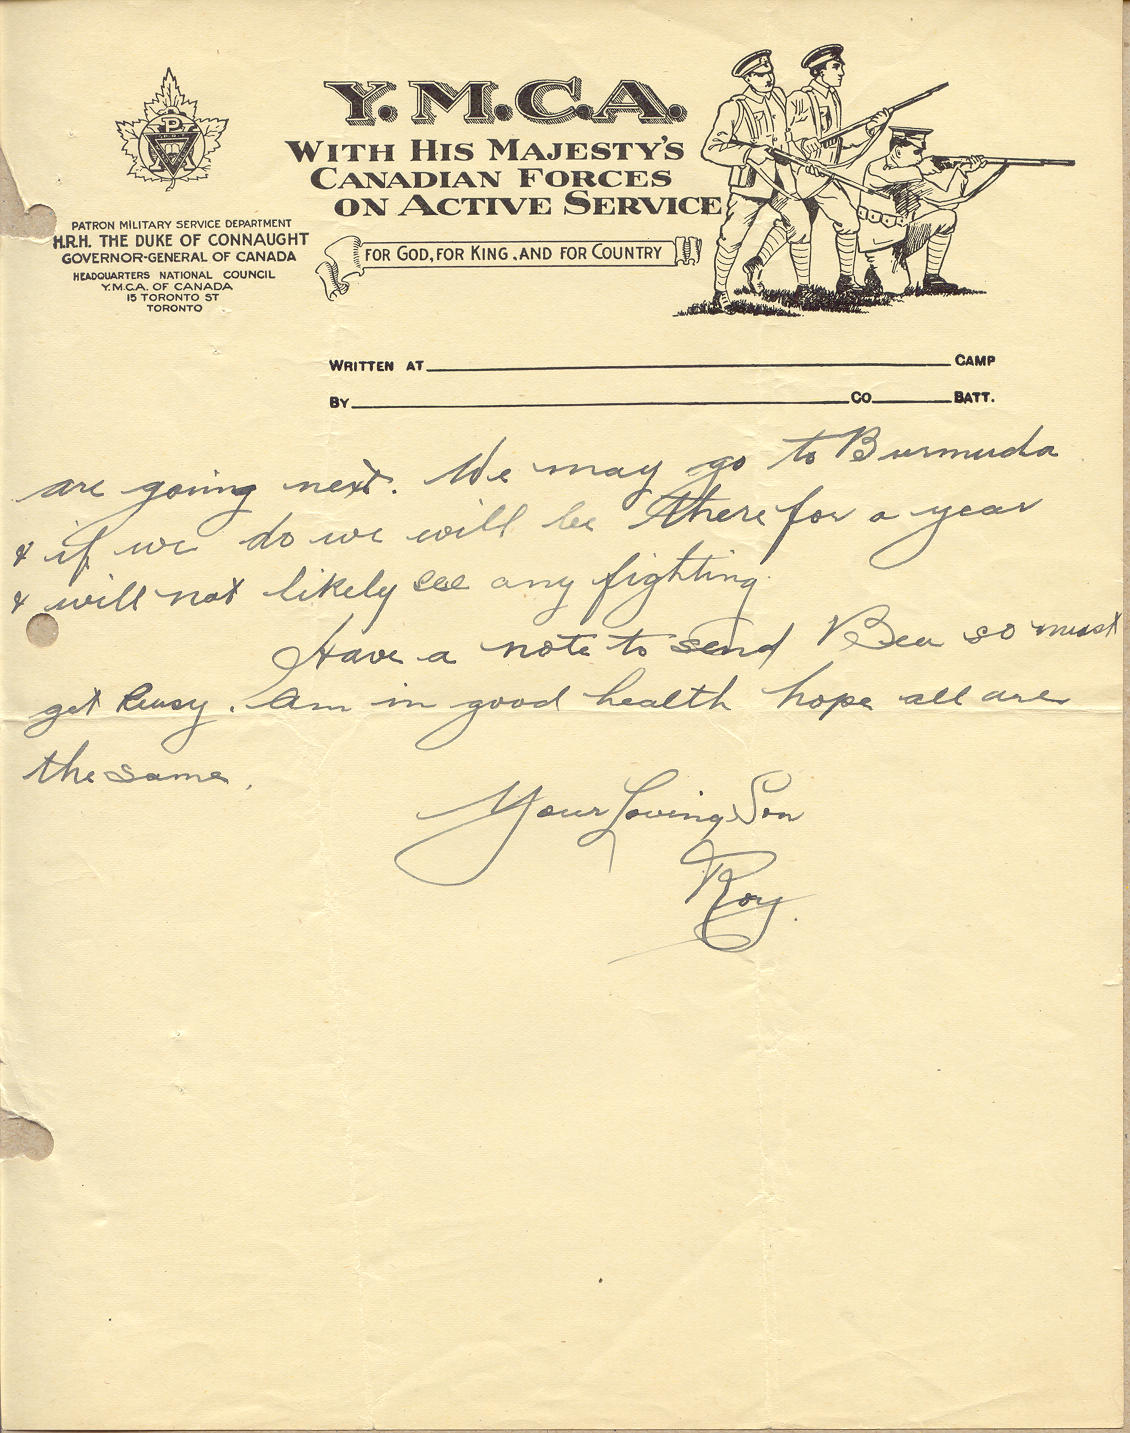 Y.M.C.A.
WITH HIS MAJESTY'S
CANADIAN FORCES
ON ACTIVE SERVICE
FOR GOD, FOR KING, AND FOR COUNTRY
PATRON MILITARY SERVICE DEPARTMENT
H.R.H. THE DUKE OF CONNAUGHT
GOVERNOR-GENERAL OF CANADA
HEADQUARTERS NATIONAL COUNCIL
Y.M.C.A. OF CANADA
15 TORONTO ST
TORONTO
WRITTEN AT CAMP
BY CO BATT.
are going next. We may go to Bermuda
& if we do we will be there for a year
& will not likely see any fighting.
Have a note to send Bea so must
get busy. Am in good health hope all are
the same.
Your Loving Son
Roy.